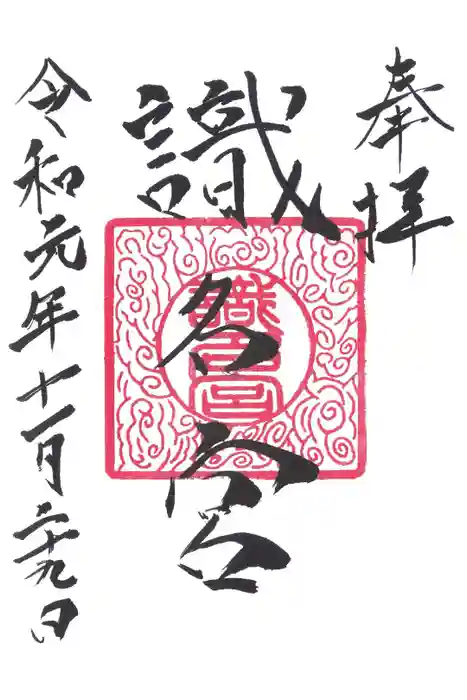 奉拝
識名宮
識名宮
令和元年十一月二十九日